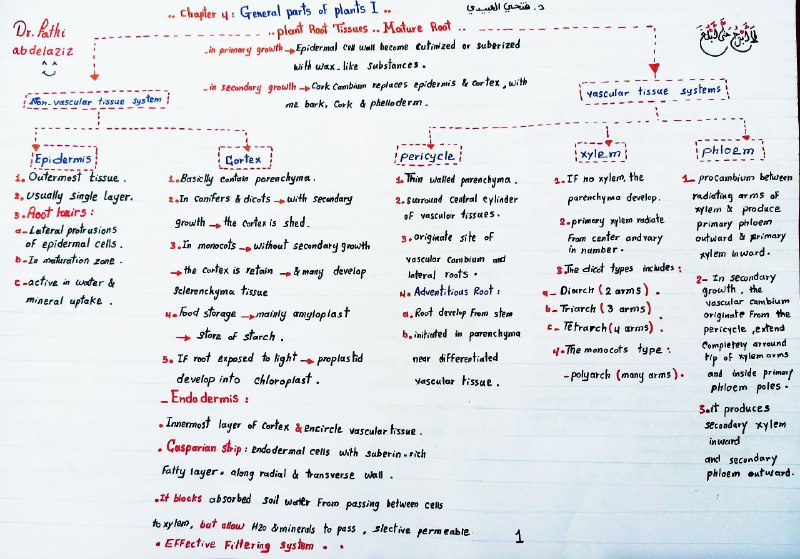 .. Chapter 4: General parts of plants I ..
د. فتحي العبيدي
Dr. Fathi
abdelaziz
.. plant Root Tissues .. Mature Root ..
- in primary growth → Epidermal cell wall become cutinized or suberized
with wax-like substances.
- in secondary growth → Cork Cambium replaces epidermis & cortex, with
me bark, Cork & phelloderm.
Non-vascular tissue system
vascular tissue systems
Epidermis
1. Outermost tissue.
2. Usually single layer.
3. Root hairs:
a- Lateral protrusions
of epidermal cells.
b- In maturation zone.
c- active in water &
mineral uptake.
Cortex
1. Basiclly contain parenchyma.
2. In conifers & dicots → with secondary
growth → the cortex is shed.
3. In monocots → without secondary growth
→ the cortex is retain → & many develop
sclerenchyma tissue
4. Food storage → mainly amyloplast
→ store of starch.
5. If root exposed to light → proplastid
develop into chloroplast.
- Endodermis:
• Innermost layer of cortex & encircle vascular tissue.
• Casparian strip: endodermal cells with suberin-rich
Fatty layer" along radial & transverse wall.
• It blocks absorbed soil water From passing between cells
to xylem, but allow H2O & minerals to pass, slective permeable
" Effective Filtering system "
pericycle
1. Thin walled parenchyma.
2. surround central cylinder
of vascular tissues.
3. originate site of
vascular cambium and
lateral roots.
4. Adventitious Root:
a. Root develop From stem
b. initiated in parenchyma
near differentiated
vascular tissue.
xylem
1. IF no xylem, the
parenchyma develop.
2. primary xylem radiate
From center and vary
in number.
3. The dicot types includes:
a- Diarch (2 arms)
b- Triarch (3 arms)
c- Tetrarch (4 arms).
4. The monocots type:
- polyarch (many arms).
phloem
1- procambium between
radiating arms of
xylem & produce
primary phloem
outward & primary
xylem inward.
2- In secondary
growth, the
vascular cambium
originate From the
pericycle, extend
completely arround
tip of xylem arms
and inside primary
phloem poles.
3. it produces
secondary xylem
inward
and secondary
phloem outward.
1